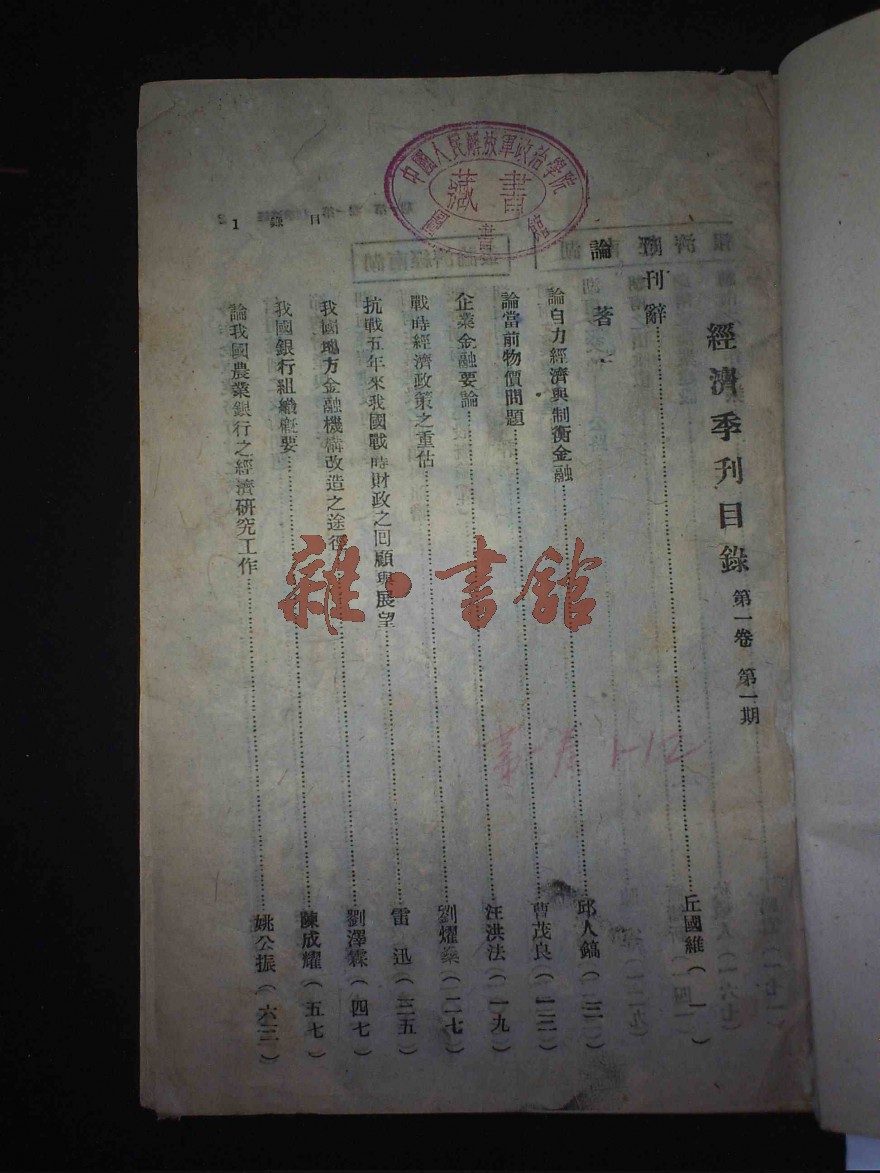 中國人民解放軍政治學院
藏書
圖書館
目錄 1
經濟季刊目錄 第一卷 第一期
發刊辭……丘國維（一）
論著
論自力經濟與制衡金融……邱人鎬（三）
論當前物價問題……曹茂良（一三）
企業金融要論……汪洪法（一九）
戰時經濟政策之重估……劉耀燊（二七）
抗戰五年來我國戰時財政之回顧與展望……雷迅（三五）
我國地方金融機構改造之途徑……劉澤霖（四七）
我國銀行組織概要……陳成耀（五七）
論我國農業銀行之經濟研究工作……姚公振（六三）
雜·書館